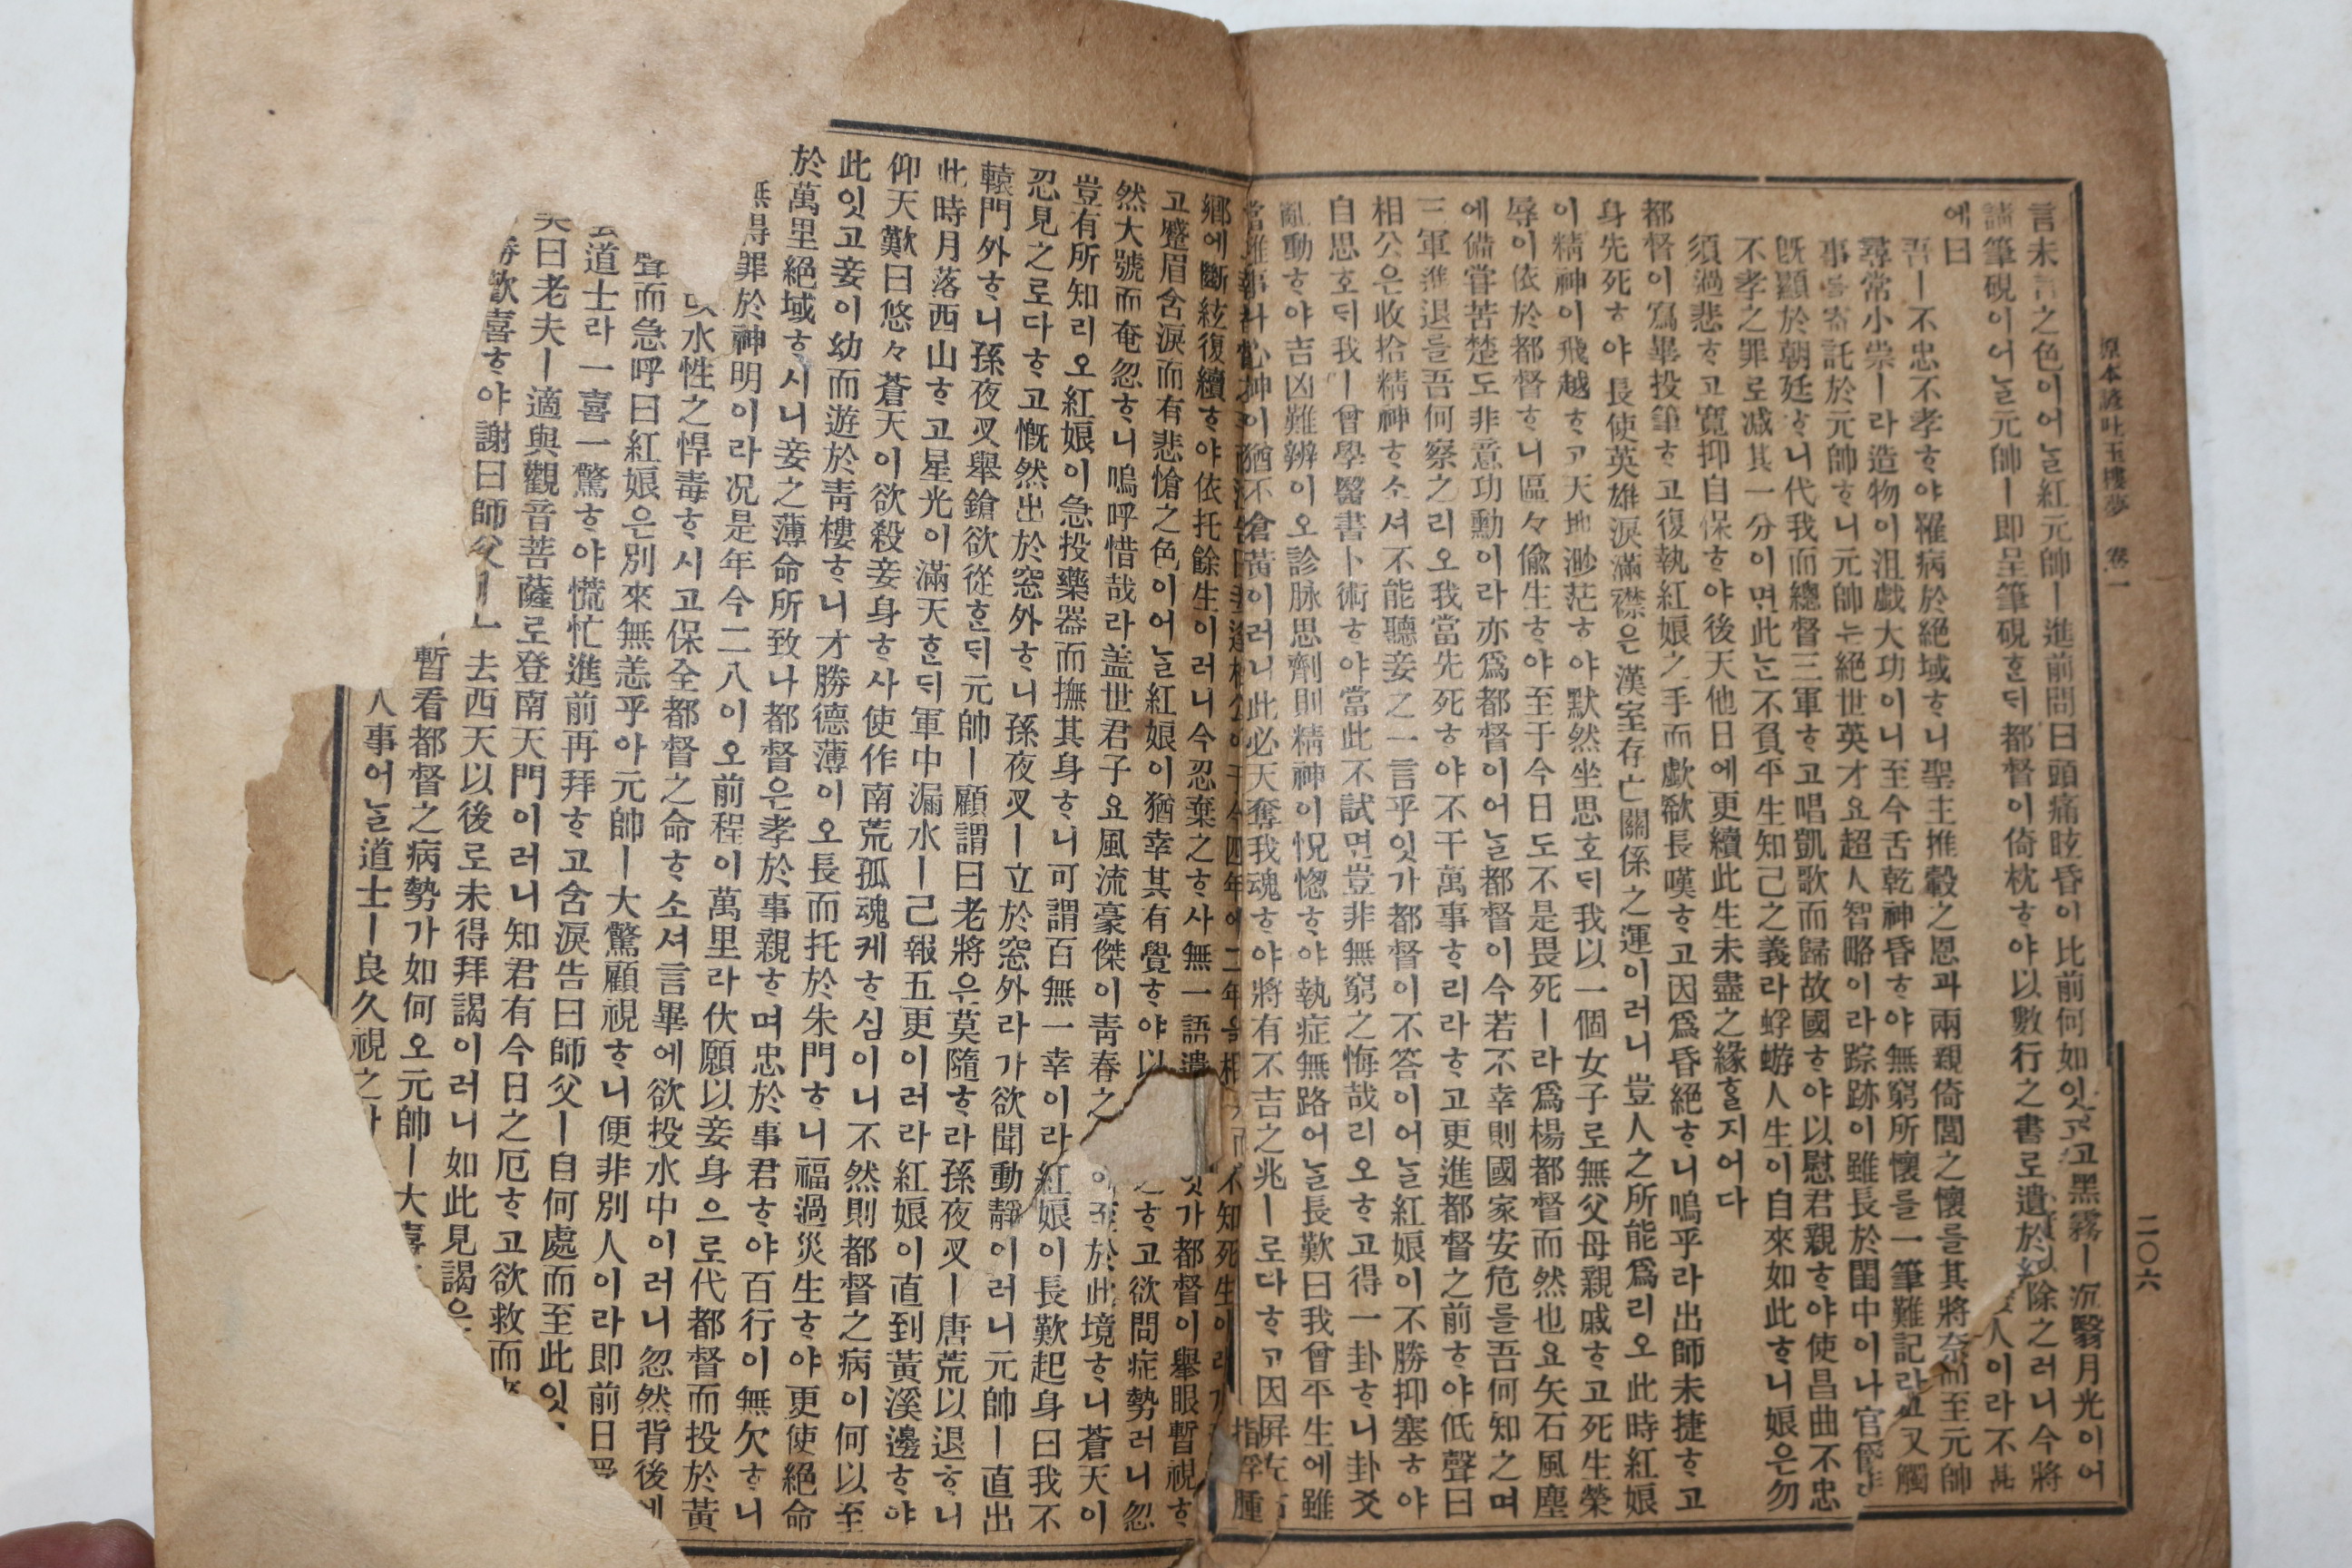 原本諺吐玉樓夢 卷一
二〇六
之色이어늘紅元帥ㅣ進前問曰頭痛眩昏이比前何如잇고
黑霧ㅣ沉翳月光이어
筆硯이어늘元帥ㅣ即呈筆硯ᄒᆞᆫᄃᆡ都督이倚枕ᄒᆞ야以數行之書로遺於紅
除之러니今將
에曰
人이라不甚
吾ㅣ不忠不孝ᄒᆞ야罹病於絕域ᄒᆞ니聖主推轂之恩과兩親倚閭之懷를其將奈何至元帥
尋常小祟ㅣ라造物이沮戱大功이니至今舌乾神昏ᄒᆞ야無窮所懷를一筆難記라
又觸
事를寄託於元帥ᄒᆞ니元帥는絕世英才요超人智略이라踪跡이雖長於閨中이나官爵
既顯於朝廷ᄒᆞ니代我而總督三軍ᄒᆞ고唱凱歌而歸故國ᄒᆞ야以慰君親ᄒᆞ야使昌曲不忠
不孝之罪로减其一分이면此는不負平生知己之義라蜉蝣人生이自來如此ᄒᆞ니娘은勿
須過悲ᄒᆞ고寬抑自保ᄒᆞ야後天他日에更續此生未盡之緣ᄒᆞᆯ지어다
都督이寫畢投筆ᄒᆞ고復執紅娘之手而歔欷長嘆ᄒᆞ고因爲昏絕ᄒᆞ니嗚乎라出師未捷ᄒᆞ고
身先死ᄒᆞ야長使英雄淚滿襟은漢室存亡關係之運이러니豈人之所能爲리오此時紅娘
이精神이飛越ᄒᆞ고天地渺茫ᄒᆞ야默然坐思호ᄃᆡ我以一個女子로無父母親戚ᄒᆞ고死生榮
辱이依於都督ᄒᆞ니區々偸生ᄒᆞ야至于今日도不是畏死ㅣ라爲楊都督而然也요矢石風塵
에備嘗苦楚도非意功勳이라亦爲都督이어늘都督이今若不幸則國家安危를吾何知之며
三軍進退를吾何察之리오我當先死ᄒᆞ야不干萬事ᄒᆞ리라ᄒᆞ고更進都督之前ᄒᆞ야低聲曰
相公은收拾精神ᄒᆞ소셔不能聽妾之一言乎잇가都督이不答이어늘紅娘이不勝抑塞ᄒᆞ야
自思호ᄃᆡ我ㅣ曾學醫書卜術ᄒᆞ야當此不試면豈非無窮之悔哉리오ᄒᆞ고得一卦ᄒᆞ니卦爻
亂動ᄒᆞ야吉凶難辨이오診脉思劑則精神이怳惚ᄒᆞ야執症無路어늘長歎曰我曾平生에雖
當難事나心神이猶不倉黃이러니此必天奪我魂ᄒᆞ야將有不吉之兆ㅣ로다ᄒᆞ고因屛左右
鄕에斷絃復續ᄒᆞ야依托餘生이러니今忍棄之ᄒᆞ사無一語遺
잇가都督이擧眼暫視ᄒᆞ
고蹙眉含淚而有悲愴之色이어늘紅娘이猶幸其有覺ᄒᆞ야以
ᄒᆞ고欲問症勢러니忽
然大號而奄忽ᄒᆞ니嗚呼惜哉라盖世君子요風流豪傑이靑春之
於此境ᄒᆞ니蒼天이
豈有所知리오紅娘이急投藥器而撫其身ᄒᆞ니可謂百無一幸이라紅娘이長歎起身曰我不
忍見之로다ᄒᆞ고慨然出於窓外ᄒᆞ니孫夜叉ㅣ立於窓外라가欲聞動靜이러니元帥ㅣ直出
轅門外ᄒᆞ니孫夜叉擧鎗欲從ᄒᆞᆫᄃᆡ元帥ㅣ顧謂曰老將은莫隨ᄒᆞ라孫夜叉ㅣ唐荒以退ᄒᆞ니
此時月落西山ᄒᆞ고星光이滿天ᄒᆞᆫᄃᆡ軍中漏水ㅣ已報五更이러라紅娘이直到黃溪邊ᄒᆞ야
仰天歎曰悠々蒼天이欲殺妾身ᄒᆞ사使作南荒孤魂케ᄒᆞ심이니不然則都督之病이何以至
此잇고妾이幼而遊於靑樓ᄒᆞ니才勝德薄이오長而托於朱門ᄒᆞ니福過災生ᄒᆞ야更使絕命
於萬里絕域ᄒᆞ시니妾之薄命所致나都督은孝於事親ᄒᆞ며忠於事君ᄒᆞ야百行이無欠ᄒᆞ니
無得罪於神明이라况是年今二八이오前程이萬里라伏願以妾身으로代都督而投於黃
水性之悍毒ᄒᆞ시고保全都督之命ᄒᆞ소셔言畢에欲投水中이러니忽然背後에
聲而急呼曰紅娘은別來無恙乎아元帥ㅣ大驚顧視ᄒᆞ니便非別人이라即前日
道士라一喜一驚ᄒᆞ야慌忙進前再拜ᄒᆞ고含淚告曰師父ㅣ自何處而至此잇
笑曰老夫ㅣ適與觀音菩薩로登南天門이러니知君有今日之厄ᄒᆞ고欲救而來
歡喜ᄒᆞ야謝曰師父ㅣ一去西天以後로未得拜謁이러니如此見謁은
暫看都督之病勢가如何오元帥ㅣ大喜
人事어늘道士ㅣ良久視之